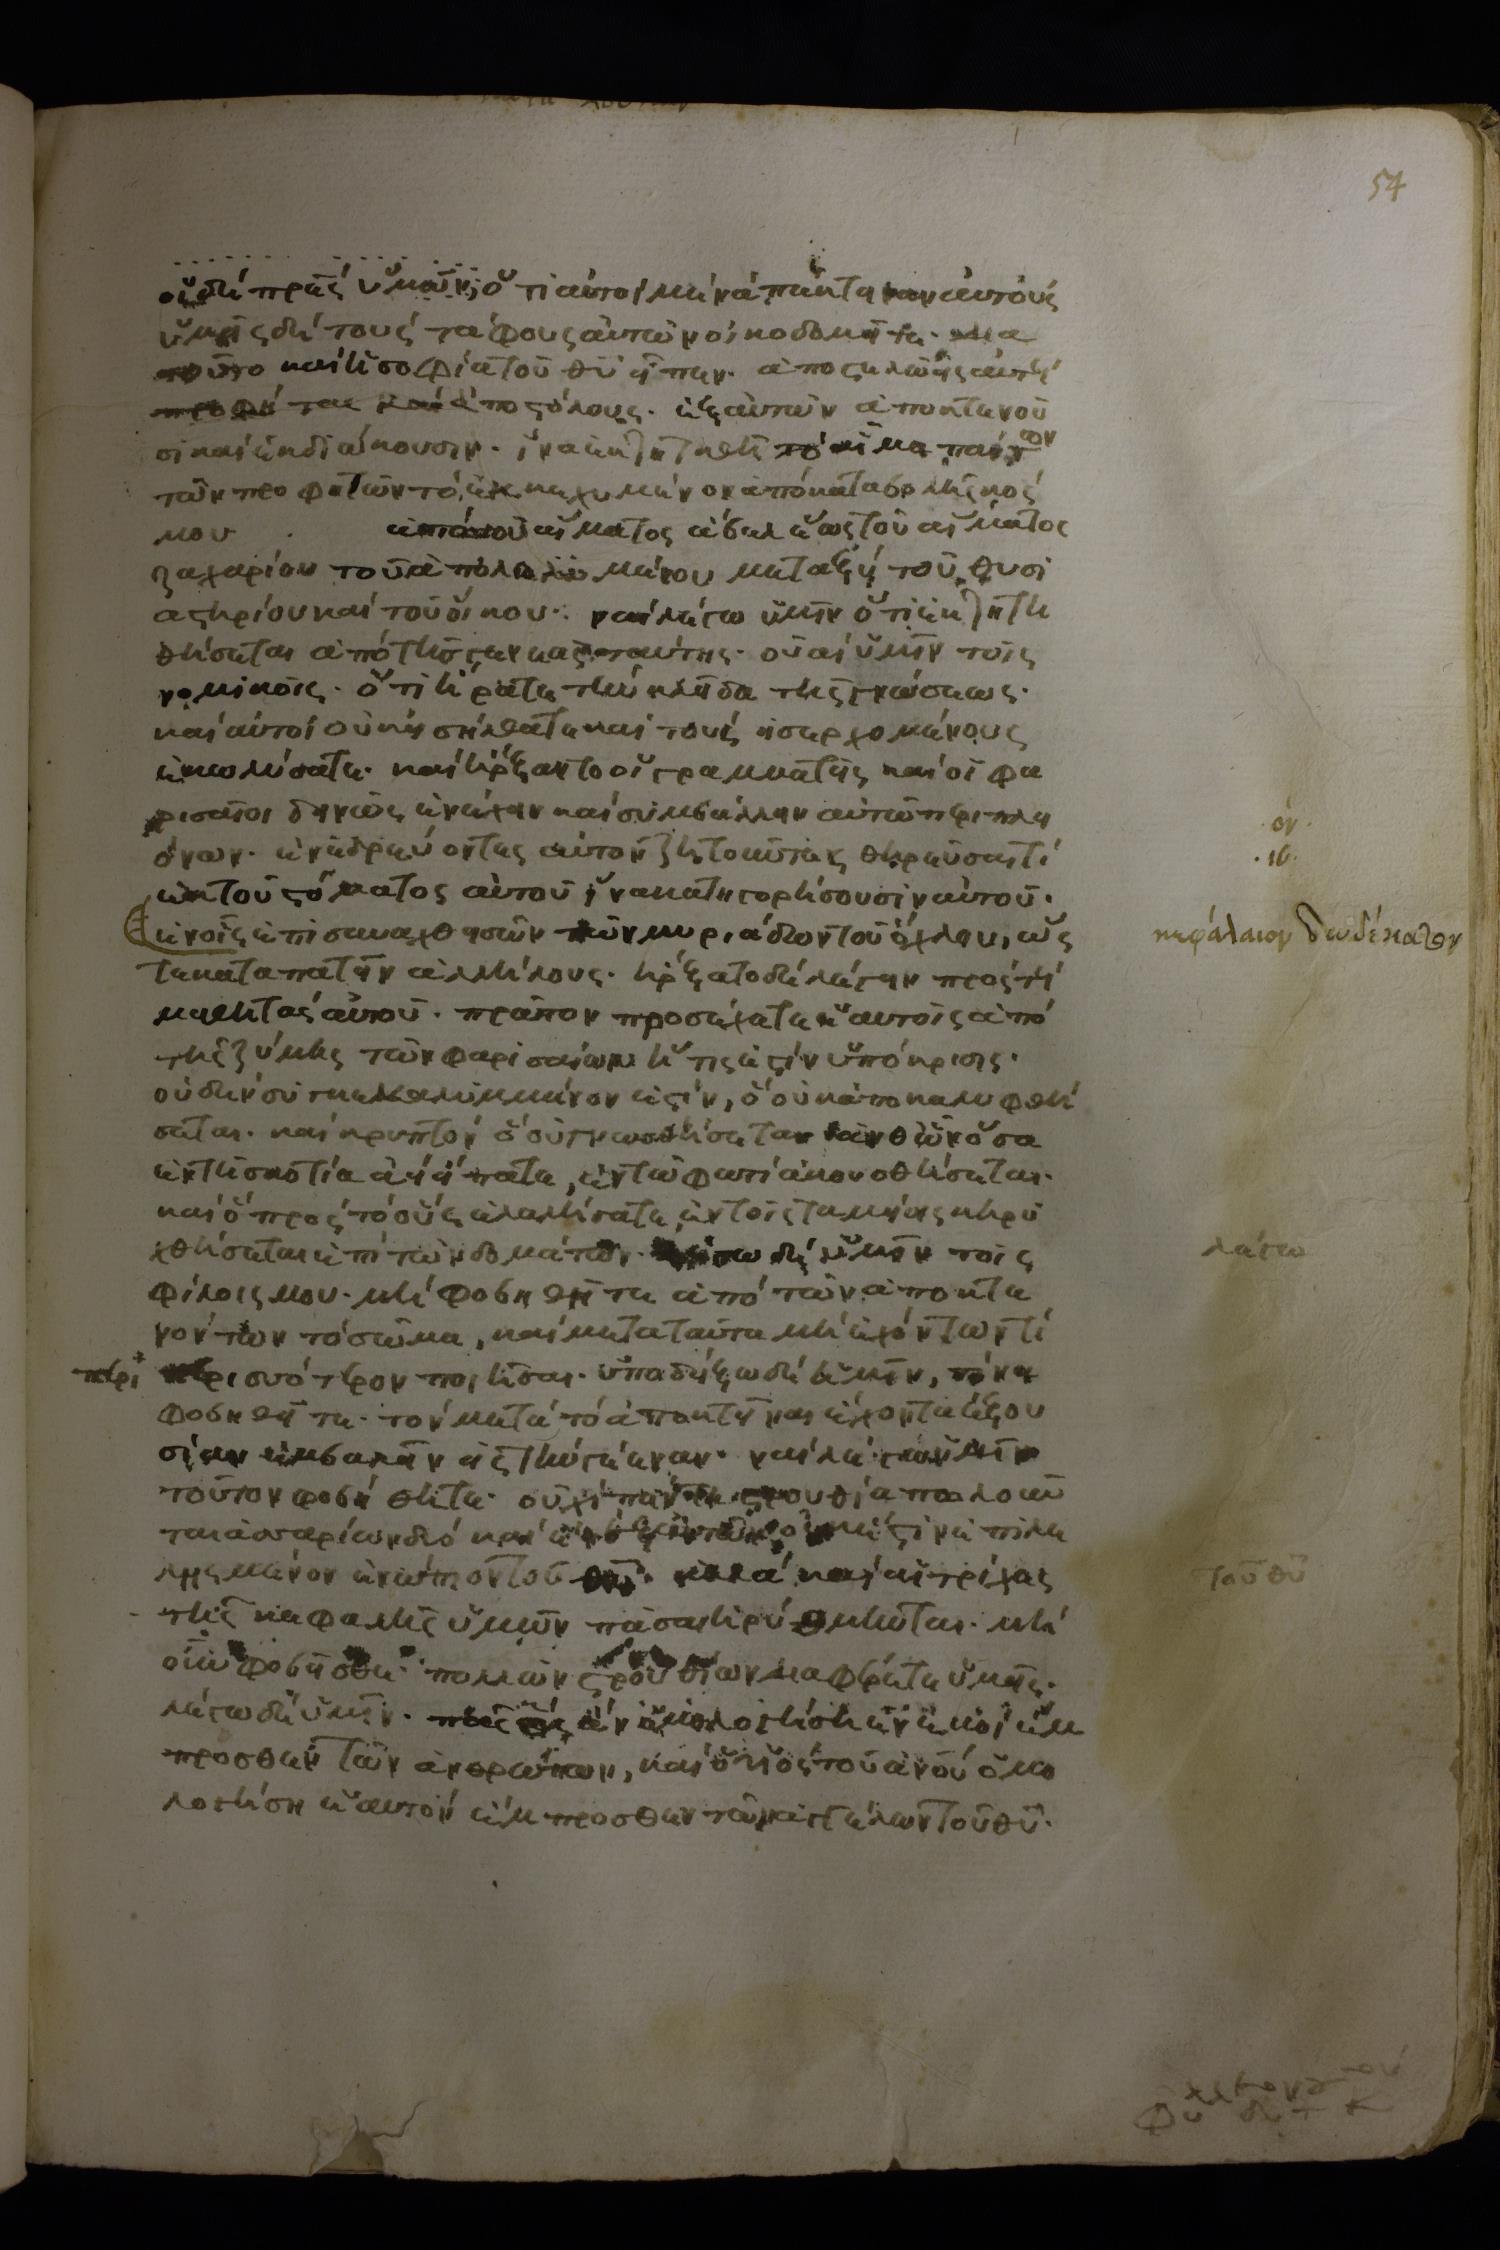 54
οἱ δὲ πρ̅ε̅ς ὑμῶν, ὅτι αὐτοὶ μὲν ἀπέκτειναν αὐτοὺς
ὑμεῖς δὲ τοὺς τάφους αὐτῶν οἰκοδομεῖτε. δια
τοῦτο καὶ ἡ σοφία τοῦ θ̅υ̅ εἶπεν. ἀποστελῶ εἰς αὐτοὺς
προφήτας καὶ ἀποστόλους. ἐξ αὐτῶν ἀποκτενοῦ
σι καὶ ἐκδιώκουσιν. ἵνα ἐκζητηθῆ τὸ αἷμα πάντων
τῶν προφητῶν τὸ ἐκκεχυμένον ἀπὸ καταβολῆς κόσ
μου ἀπὸ τοῦ αἵματος ἄβελ ἕως τοῦ αἵματος
ζαχαρίου τοῦ ἀπολομένου μεταξὺ τοῦ θυσι
αστηρίου καὶ τοῦ οἴκου. ναὶ λέγω ὑμῖν ὅτι ἐκζητη
θήσεται ἀπὸ τῆς γενεᾶς ταύτης. οὐαὶ ὑμῖν τοῖς
νομικοῖς. ὅτι ἤρατε τὴν κλεῖδα τῆς γνώσεως.
καὶ αὐτοὶ οὐκ εἰσήλθατε καὶ τοὺς εἰσερχομένους
ἐκωλύσατε. καὶ ἤρξαντο οἱ γραμματεῖς καὶ οἱ φα
ρισαῖοι δεινῶς ἐνέχειν καὶ συμβάλλειν αὐτῶ περὶ πλει
όνων. ἐνεδρεύοντες αὐτὸν ζητοῦντες θηρεῦσαι τί
ἐκ τοῦ στόματος αὐτοῦ ἵνα κατηγορήσουσιν αὐτοῦ.
ὁν
.ιβ.
Ἐν οἷς ἐπισυναχθεισῶν τῶν μυριάδων τοῦ ὄχλου, ὥς
κεφάλαιον δωδέκατον
τε καταπατεῖν ἀλλήλους. ἤρξατο δὲ λέγειν πρὸς τοὺς
μαθητὰς αὐτοῦ. πρῶτον προσέχετε ἑαυτοῖς ἀπὸ
τῆς ζύμης τῶν φαρισαίων ἥτις ἐστὶν ὑπόκρισις.
οὐδὲν συγκεκαλυμμένον ἐστὶν, ὃ οὐκ ἀποκαλυφθή
σεται. καὶ κρυπτὸν ὃ οὐ γνωσθήσεται ἀνθ' ὧν ὅσα
ἐν τῆ σκοτία εἴπατε, ἐν τῶ φωτὶ ἀκουσθήσεται.
καὶ ὃ πρὸς τὸ οὖς ἐλαλήσατε, ἐν τοῖς ταμείοις κηρυ
χθήσεται ἐπὶ τῶν δομάτων. λέγω δὲ ὑμῖν τοῖς
λέγω
φίλοις μου. μὴ φοβηθῆτε ἀπὸ τῶν ἀποκτε
νόντων τὸ σῶμα, καὶ μετὰ ταῦτα μὴ ἐχόντων τί
περι περισσότερον ποιῆσαι. ὑποδείξω δὲ ὑμῖν, τίνα
φοβηθῆτε. τὸν μετὰ τὸ ἀποκτεῖναι ἔχοντα ἐξου
σίαν ἐμβαλεῖν εἰς τὴν γέεναν. ναὶ λέγω ὑμῖν
τοῦτον φοβήθητε. οὐχὶ πέντε στρουθία πωλοῦν
ται ἀσσαρίων δύο καὶ ἓν ἐξ αὐτῶν οὐκ ἔστιν ἐπιλε
λησμένον ἐνώπιον τοῦ θ̅υ̅. ἀλλὰ καὶ αἱ τρίχες
τοῦ θ̅υ̅
τῆς κεφαλῆς ὑμῶν πᾶσαι ἠρίθμηνται. μὴ
οὖν φοβεῖσθε. πολλῶν στρουθίων διαφέρετε ὑμεῖς.
λέγω δὲ ὑμῖν. πᾶς ὃς ἂν ὁμολογήση ἐν ἐμοὶ ἔμ
προσθεν τῶν ἀνθρώπων, καὶ ὁ υἱὸς τοῦ α̅ν̅ο̅υ̅ ὁμο
λογήση ἑαυτὸν ἔμπροσθεν τῶν ἀγγέλων τοῦ θ̅υ̅.